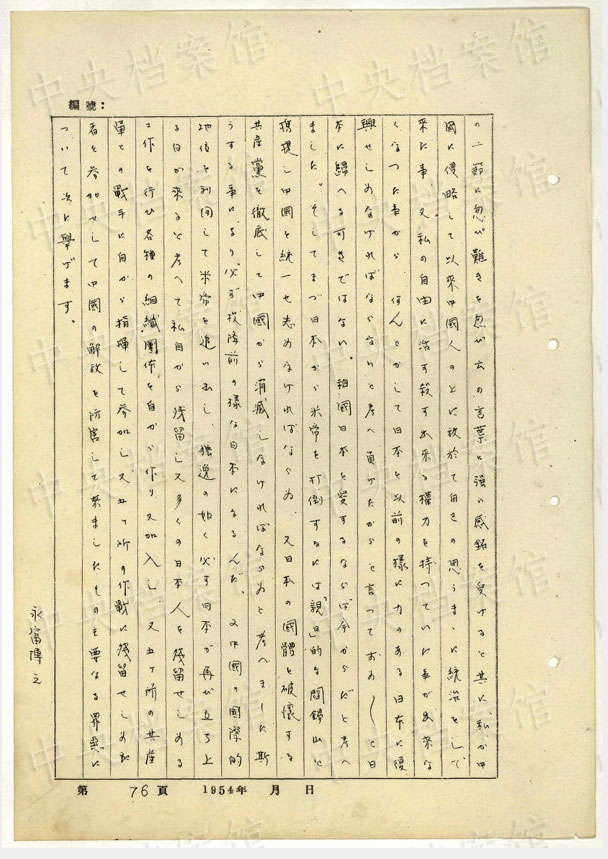 編號：
の一節に忍び難きを忍び云の言葉と強い感銘を受けると共に、私が中
國に侵略して以来中國人の上に於て自己の思うまゝに統治をして
来た事又私の自由に活す殺す出来る權力を持っていた事が出来な
くなった事から何んとかして日本を以前の様に力のある日本に復
興せしめなければならないと考へ負けたからと言っておめ〳〵と日
本に歸へる可きではない。祖國日本を愛するならば今からだと考へ
ました。そしてまづ日本から米帝を打倒するには「親日」的な閻錫山と
携提し中國を統一せ志めなければならぬ 又日本の國體を破懐する
共産黨を徹底して中國から消滅しなければならぬと考へました斯
うする事により必ず投降前の様な日本になるんだ。又中國の國際的
地位を利用して米帝を追い出し 獨逸の如く必す日本が再び立ち上
る日が来ると考へて私自から残留し又多くの日本人を残留せしめる
工作を行ひ各種の組織團体を自から作り又加入し、又五ヶ所の共産
軍との戦斗に自から指揮して参加し又五ヶ所の作戦に残留せしめた
者を参加せして中國の解放を防害して来ましたその主要なる罪惡に
ついて次に擧げます。
永富博之
第 76 頁 1954年 月 日
中央档案馆